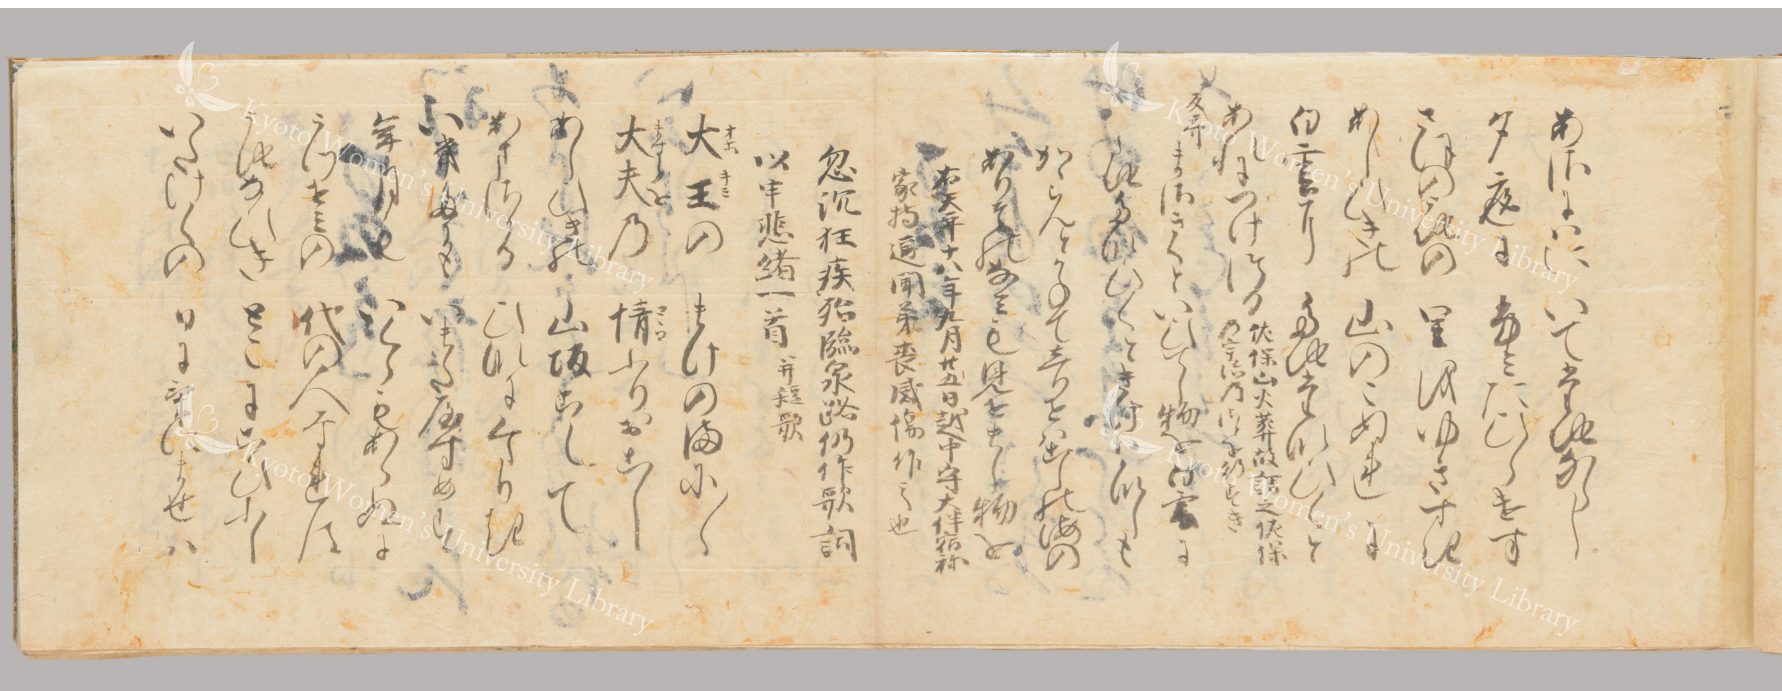 あさにはに いてたちならし
夕庭に ふみたひらけす
さほのうちの 里をゆきすき
あしひきの 山のこぬれに
白雲に たちたなひくと
あれにつけつる 佐保山火葬故謂之佐保
乃宇治乃さとをゆきすき
反哥 まさきくと いひてし物を白雲に
たちたなひくと きけはかなしも
かゝらんとかねてしりせはこしの海の
ありそのなみも見せまし物を
右天平十八年九月廿五日越中守大伴宿祢
家持遥聞弟喪感傷作之也
忽沉狂疾殆臨泉路仍作歌詞
以申悲緒一首 并短歌
大王の まけのまに〳〵
大夫乃 情ふりおこし
あしひきの 山坂こえて
あまさかる ひなにくたりき
いきたにも いまたやすめす
年月も いくらもあらぬに
うつせみの 代の人なれは
うちなひき とこにこいふし
いたけくの 日にことにませは
Kyoto Women's University Library
Kyoto Women's University Library
Kyoto Women's University Library
Kyoto Women's University Library